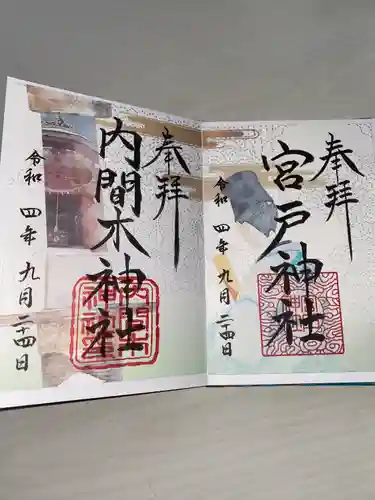 奉拝
宮戸神社
令和四年九月二十四日
奉拝
内間木神社
令和四年九月二十四日